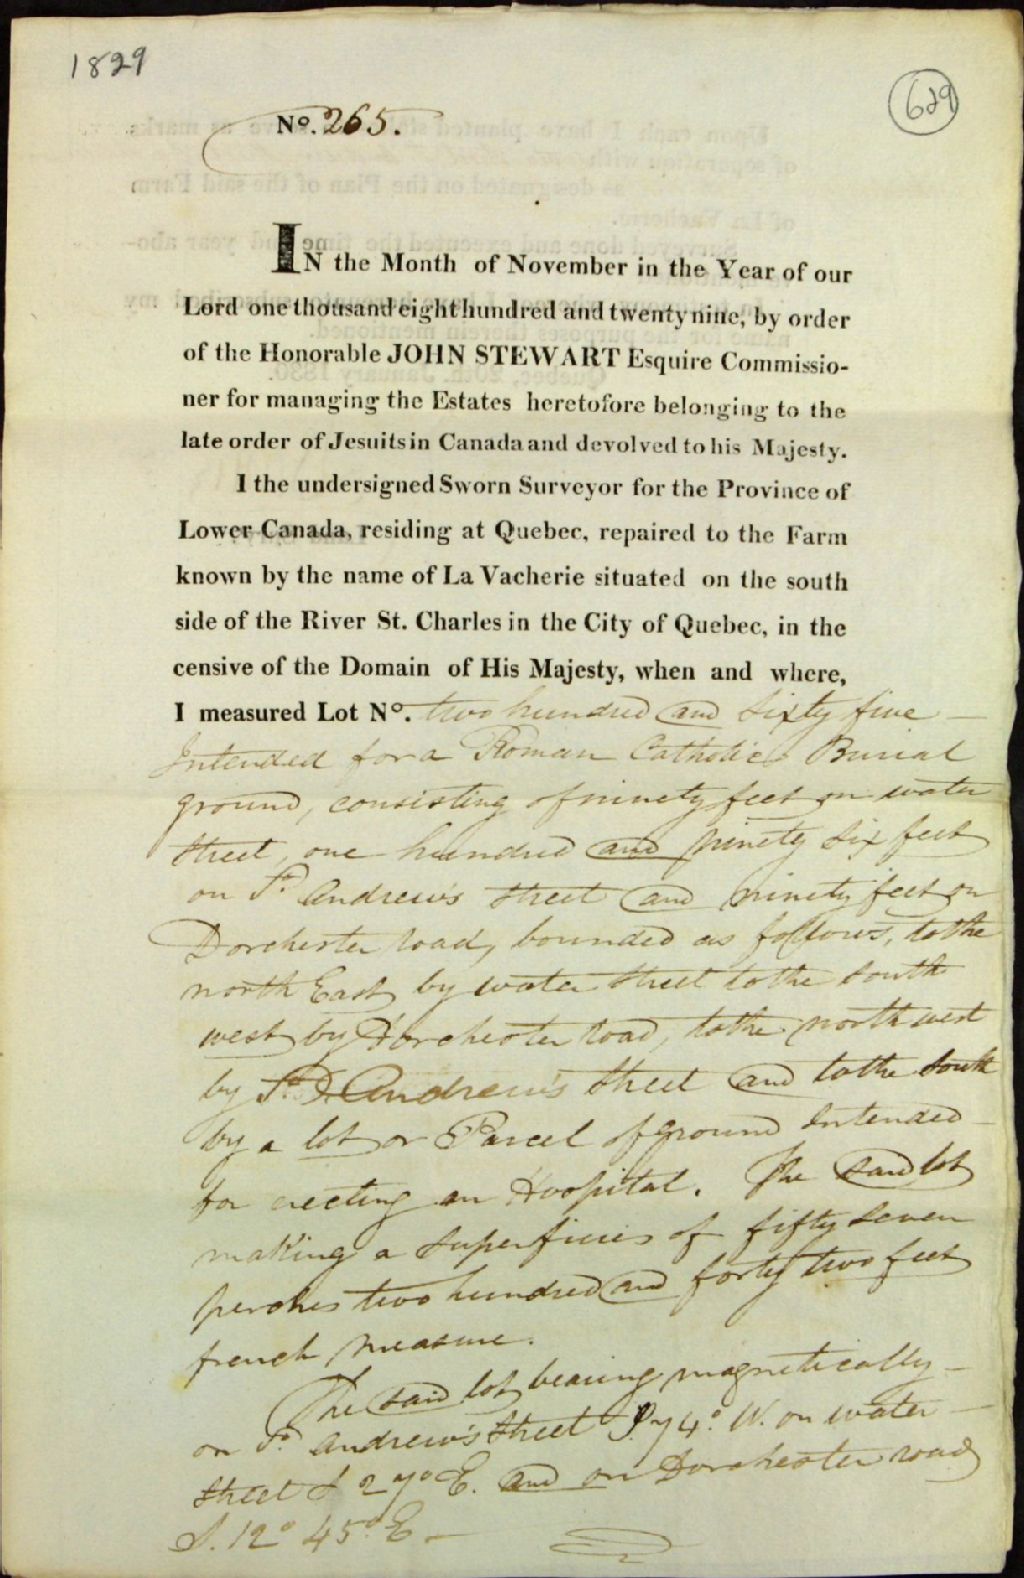 1829
629
No. 265.
IN the Month of November in the Year of our
Lord one thousand eight hundred and twenty nine, by order
of the Honorable JOHN STEWART Esquire Commissio-
ner for managing the Estates heretofore belonging to the
late order of Jesuits in Canada and devolved to his Majesty.
I the undersigned Sworn Surveyor for the Province of
Lower Canada, residing at Quebec, repaired to the Farm
known by the name of La Vacherie situated on the south
side of the River St. Charles in the City of Quebec, in the
censive of the Domain of His Majesty, when and where,
I measured Lot No. two hundred and sixty five —
Intended for a Roman Catholic Burial
ground, consisting of ninety feet on water
Street, one hundred and ninety six feet
on St. Andrew's Street and ninety feet on
Dorchester road, bounded as follows, to the
north East by water Street to the south
west by Dorchester road, to the north west
by St. Andrew's Street and to the south
by a lot or Parcel of ground Intended
for erecting an Hospital. The said lot
making a superficies of fifty seven
perches two hundred and forty two feet
french measure.
The said lot bearing magnetically —
on St. Andrew's Street 4° W. on water —
Street S 27° E. and on Dorchester road
S. 12° 45° E —